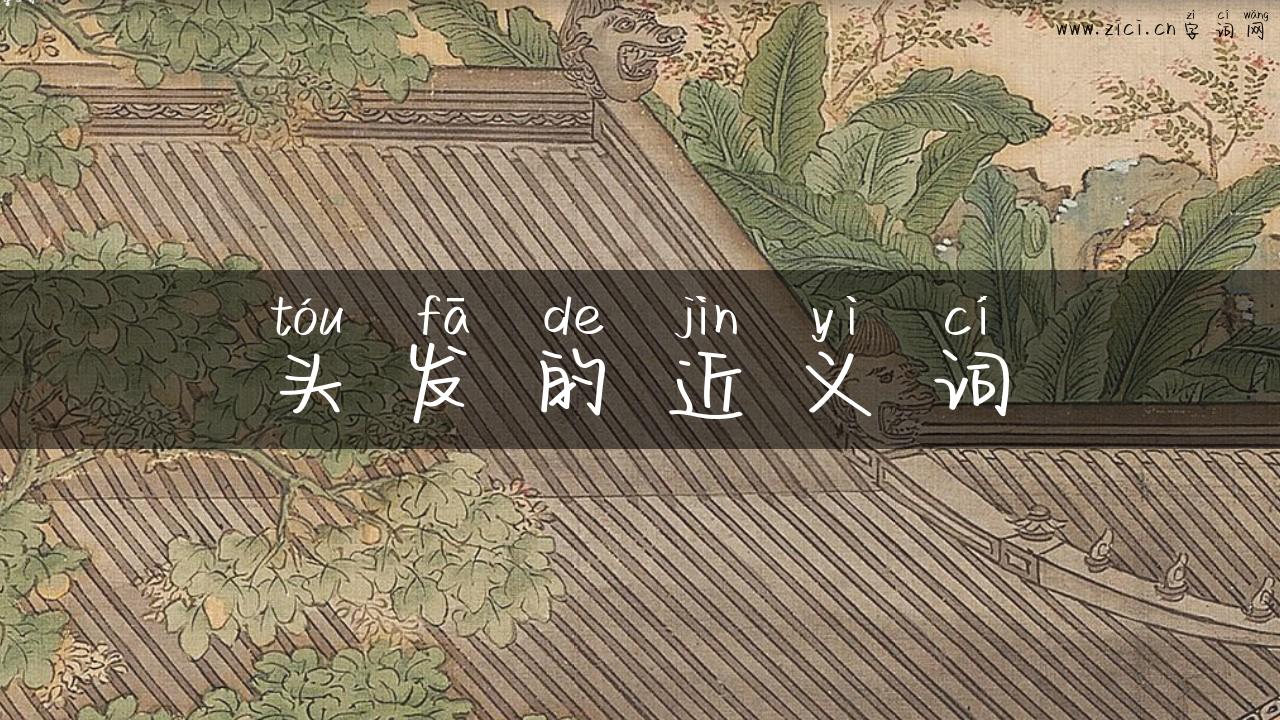 zì cí wǎng
www.zici.cn 字词网
tóu fā de jìn yì cí
头发的近义词